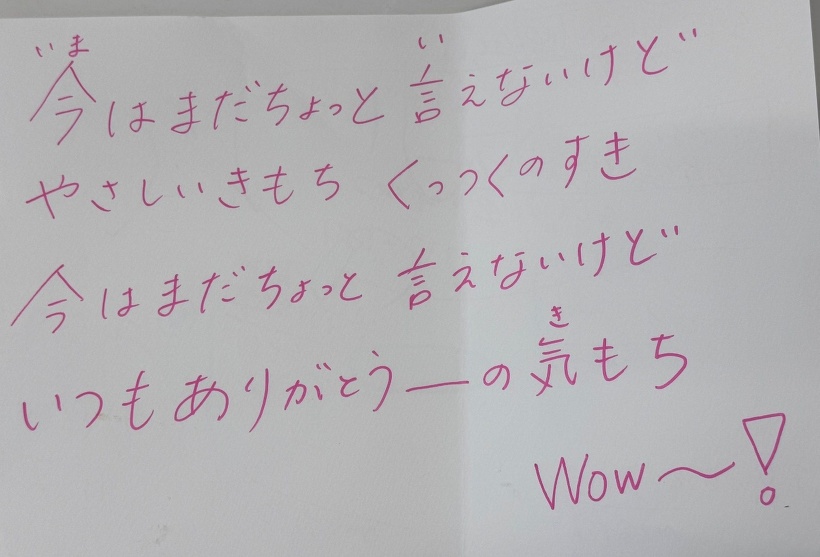 いま い
今はまだちょっと 言えないけど
やさしいきもち くっつくのすき
今はまだちょっと 言えないけど
き
いつもありがとうーの気もち
Wow〜!